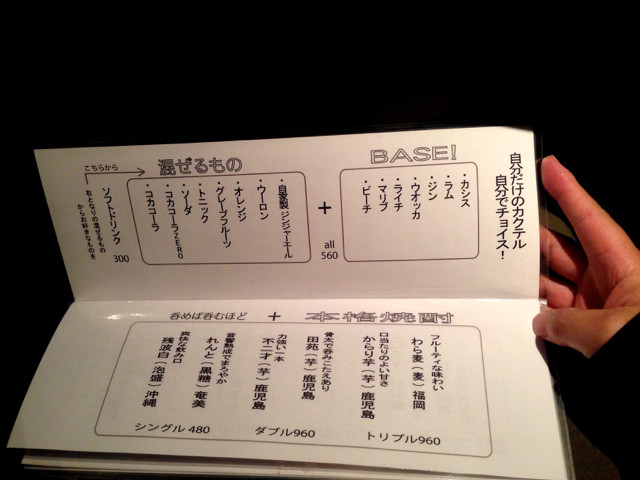 自分だけのカクテル
自分でチョイス！
BASE!
・カシス
・ラム
・ジン
・ウオッカ
・ライチ
・マリブ
・ピーチ
+
all
560
混ぜるもの
・自家製 ジンジャーエール
・ウーロン
・オレンジ
・グレープフルーツ
・トニック
・ソーダ
・コカコーラZERO
・コカコーラ
こちらから
ソフトドリンク
300
右となりの混ぜるもの
からお好きなものを
本格焼酎
+
呑めば呑むほど
フルーティな味わい
わら麦（麦）福岡
口当たりのよい甘さ
からり芋（芋）鹿児島
骨太で呑みごたえあり
田苑（芋）鹿児島
力強い一本
不二才（芋）鹿児島
音響熟成でまろやか
れんと（黒糖）奄美
爽快な飲み口
残波白（泡盛）沖縄
シングル 480
ダブル960
トリプル960